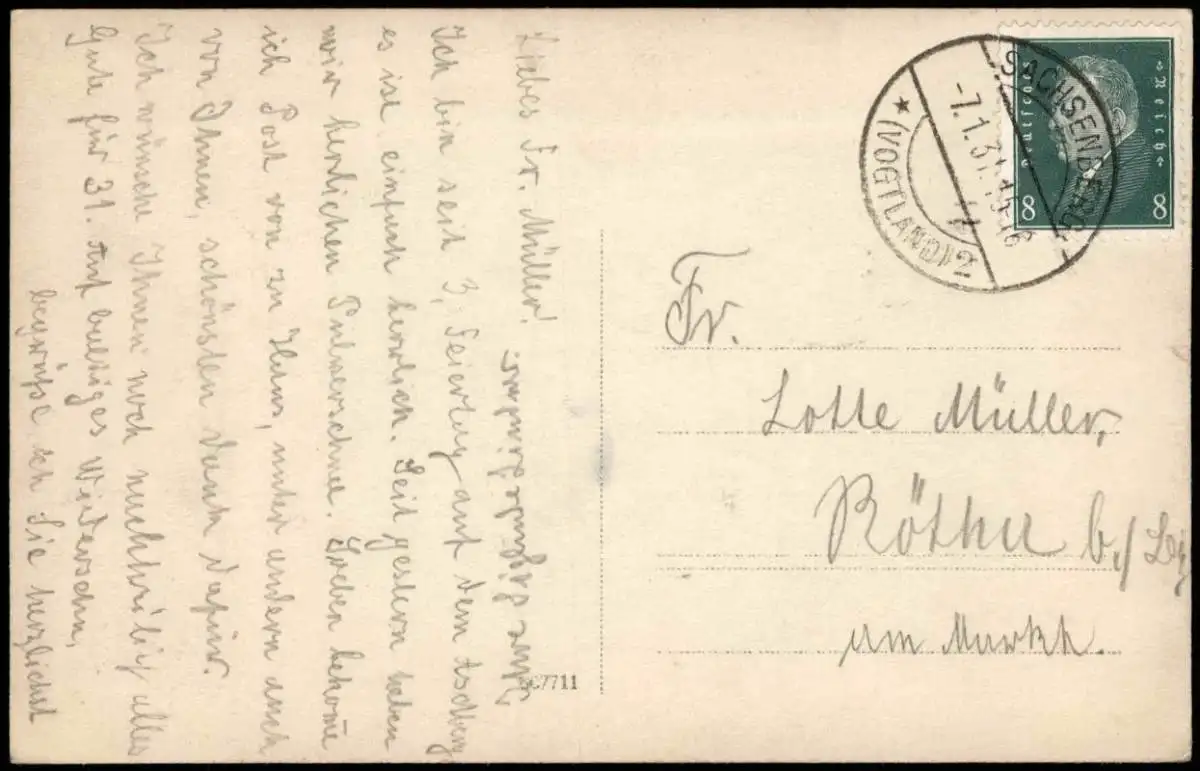 Liebes Fr. Müller!
Ich bin seit 3. Feiertag auf dem Aschberg
es ist einfach herrlich. Seit gestern haben
wir herlichen Pulverschnee. Soeben bekome
ich Post von zu Haus, unter andern auch
von Ihnen, schönsten Dank dafür.
Ich wünsche Ihnen noch nachträglich alles
Gute für 31. Auf baldiges Wiedersehn,
begrüße ich Sie herzlichst
Ihre
Fr.
Lotte Müller,
Rötha b./ Leipz
am Markt.
SACHSENBERG-
(VOGTLAND) 2
-7.1.31.15-16
Deutsches Reich
8 8
7711